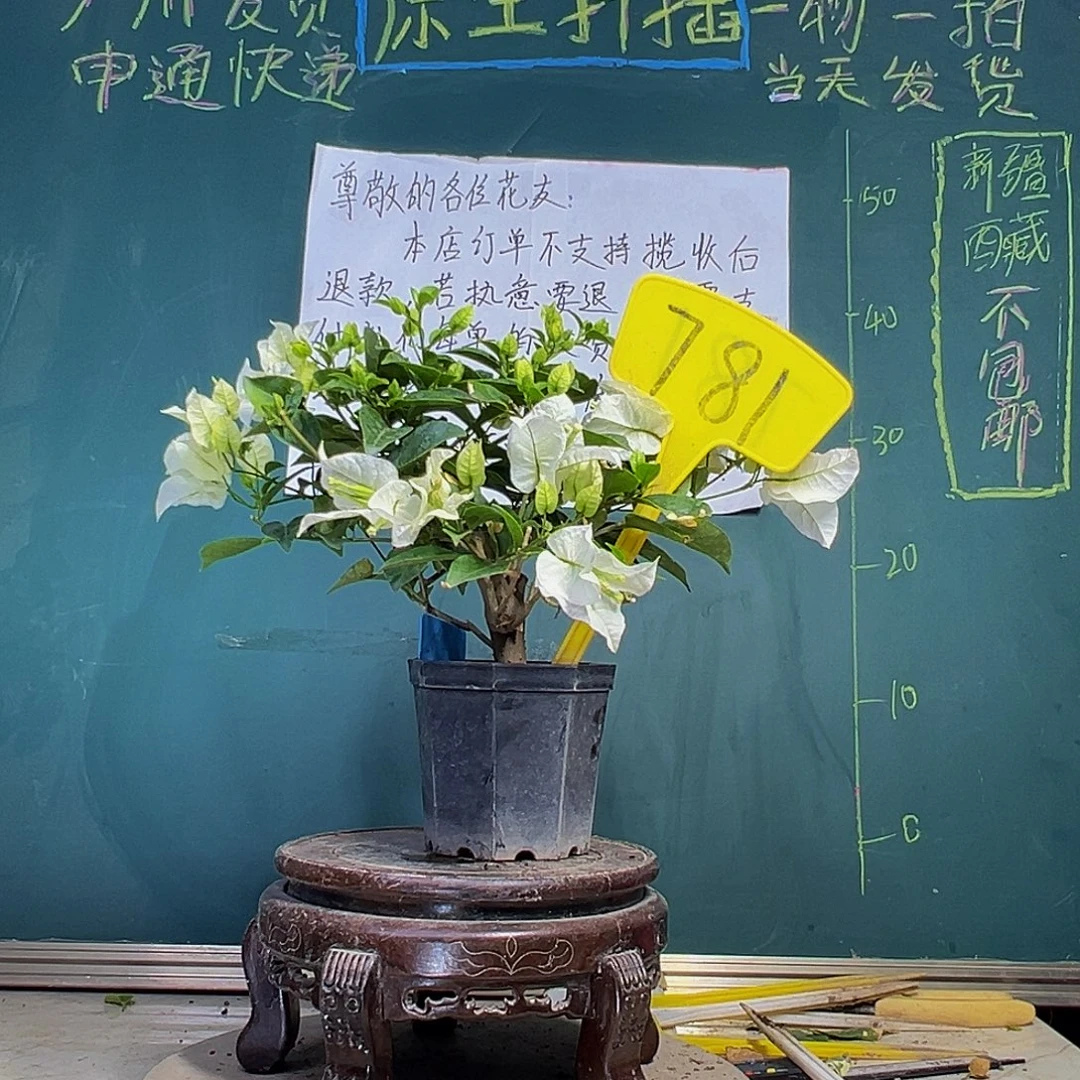 广州发货
原土扦插
一物一拍
申通快递
当天发货
尊敬的各位花友:
本店订单不支持揽收后
退款 若执意要退
781
50
40
30
20
10
0
新疆
西藏
不包邮